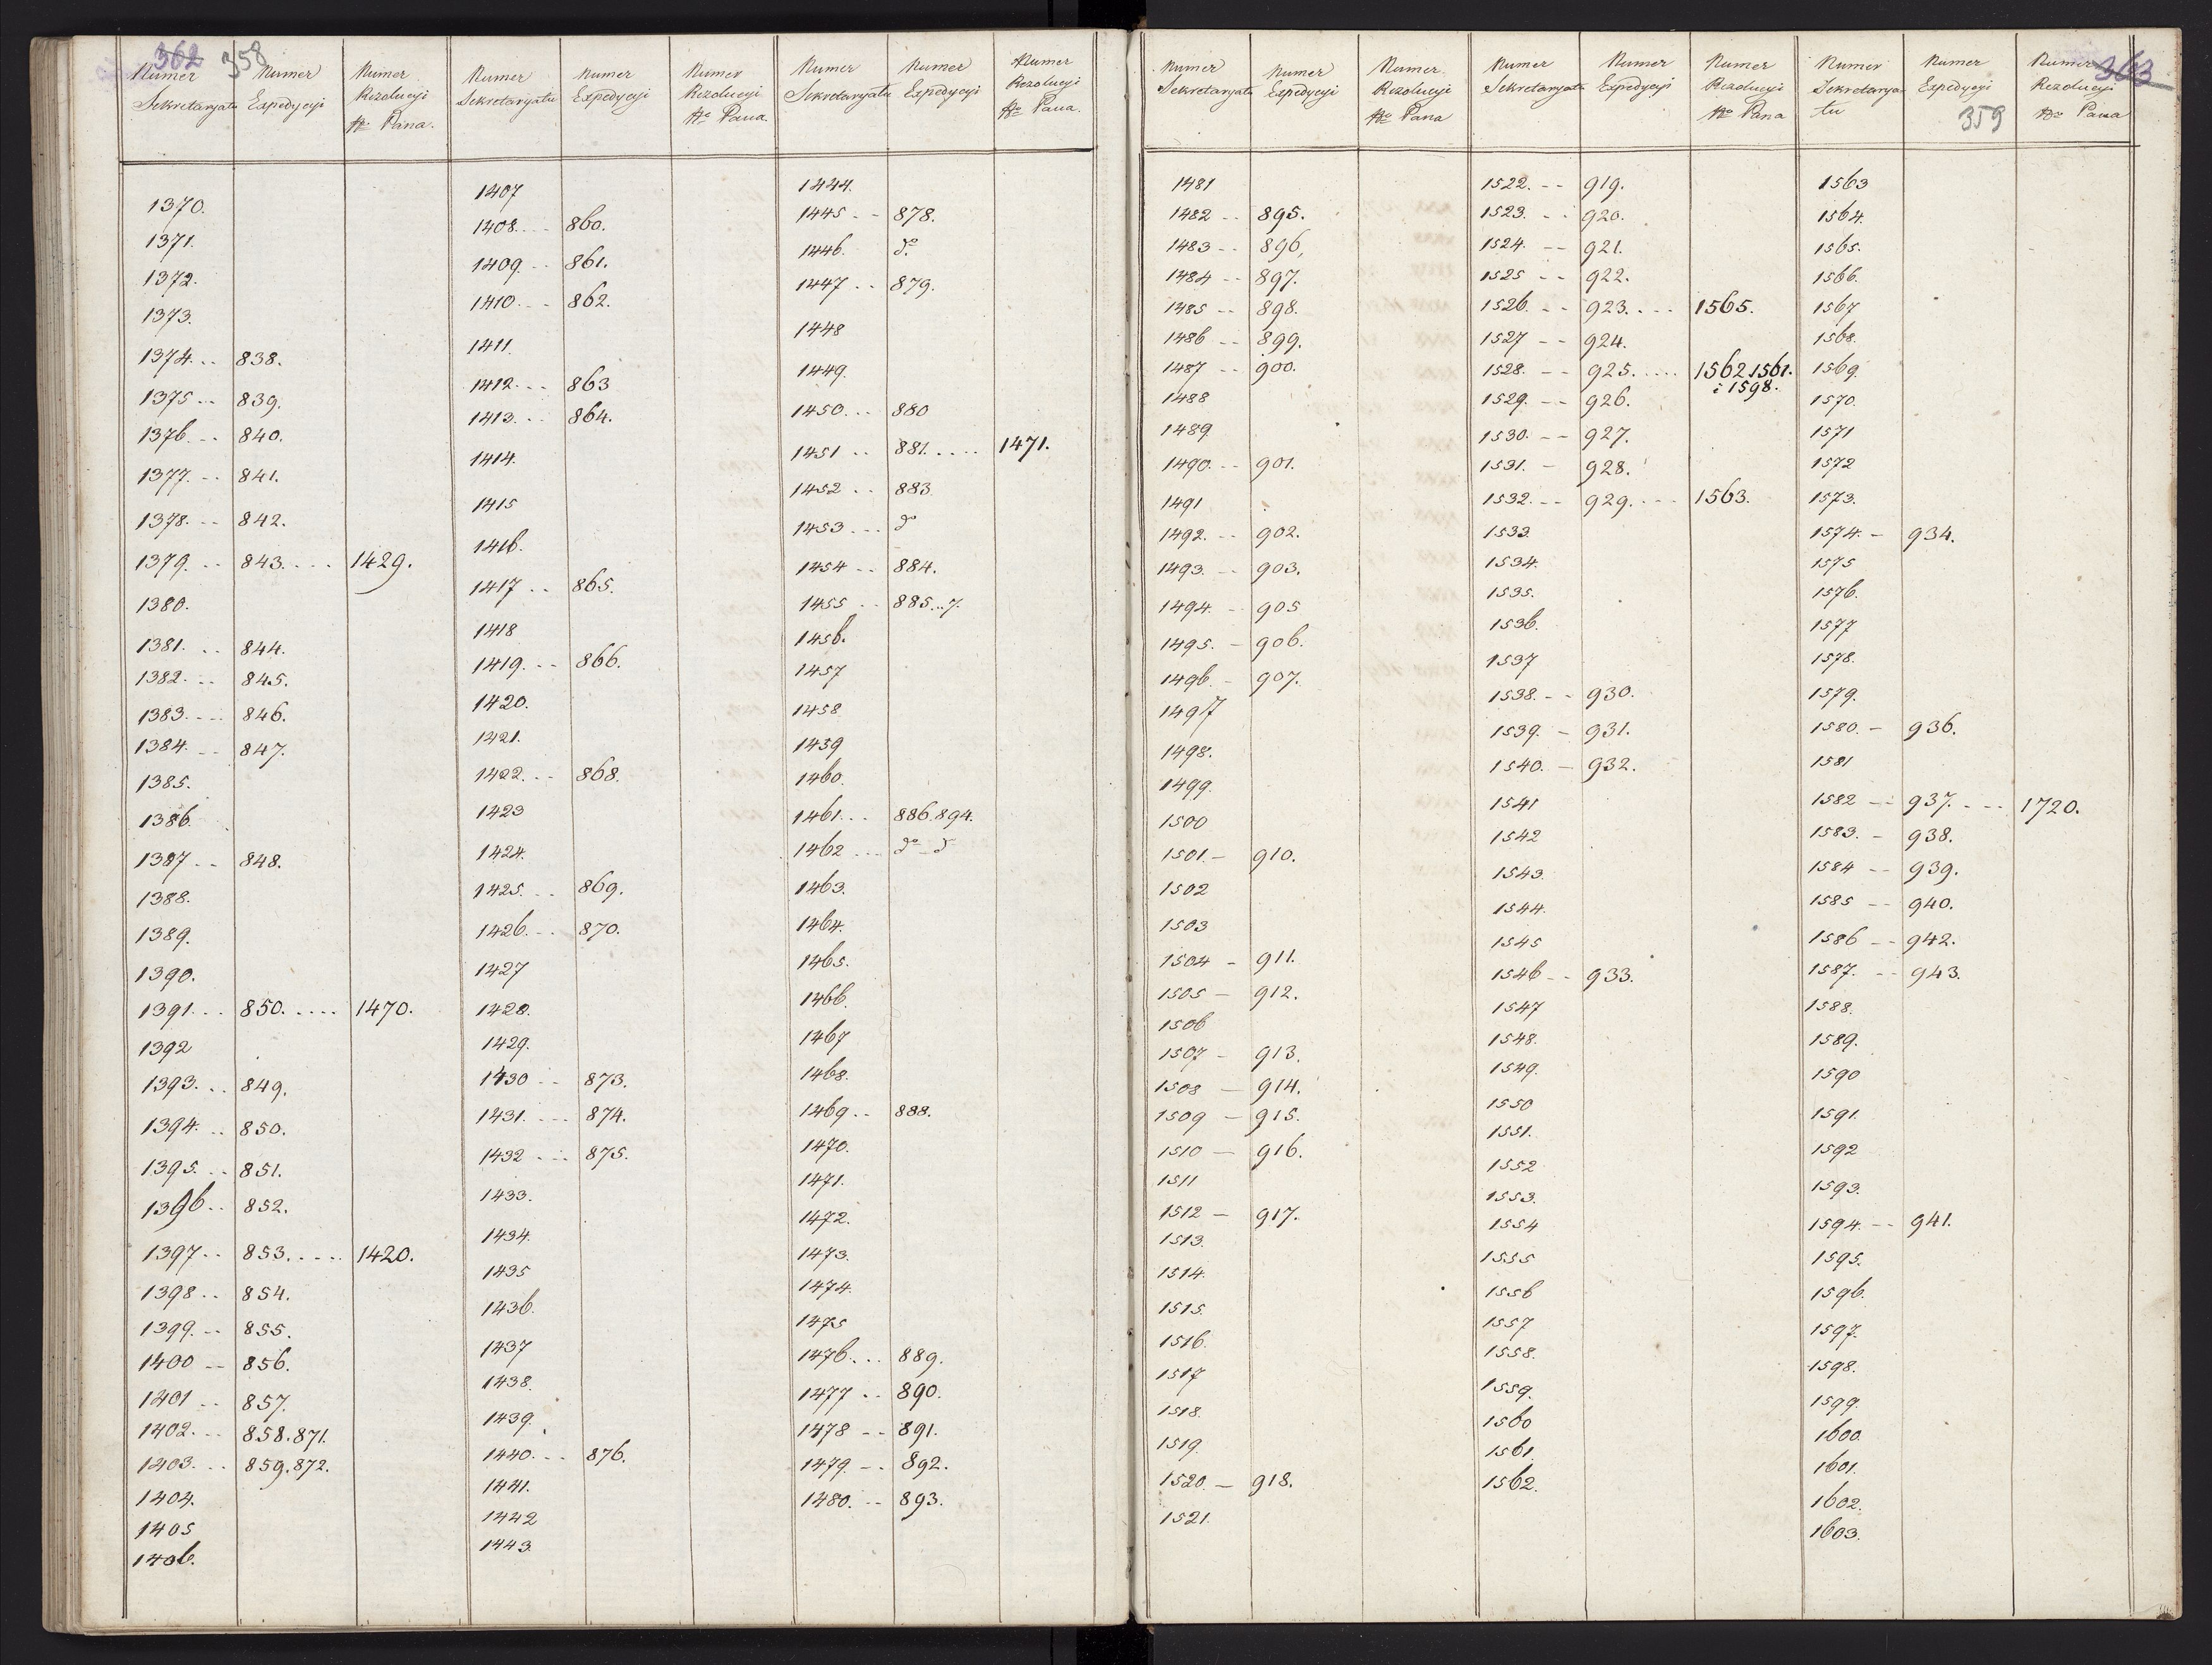 362 358
Numer Sekretaryatu | Numer Expedycyi | Numer Rezolucyi Pana.
1370.
1371.
1372.
1373.
1374. .. 838.
1375 .. 839.
1376. .. 840.
1377. .. 841.
1378. .. 842.
1379. .. 843. .... 1429.
1380.
1381. .. 844.
1382. .. 845.
1383. ... 846.
1384. .. 847.
1385.
1386.
1387 .. 848.
1388.
1389.
1390.
1391. .. 850. .... 1470.
1392
1393. .. 849.
1394. .. 850.
1395. .. 851.
1396 .. 852.
1397 .. 853. .... 1420.
1398 .. 854.
1399. .. 855.
1400 .. 856.
1401 .. 857.
1402. .. 858.871.
1403. .. 859.872.
1404.
1405
1406.
Numer Sekretaryatu | Numer Expedycyi | Numer Rezolucyi Pana.
1407
1408. ... 860.
1409. .. 861.
1410. .. 862.
1411.
1412. .. 863
1413. .. 864.
1414.
1415
1416.
1417 .. 865.
1418
1419. .. 866.
1420.
1421.
1422. .. 868.
1423
1424.
1425. .. 869.
1426. .. 870.
1427
1428.
1429.
1430 .. 873.
1431. ... 874.
1432 ... 875.
1433.
1434.
1435
1436.
1437
1438.
1439.
1440. .. 876.
1441.
1442
1443.
Numer Sekretaryatu | Numer Expedycyi | Numer Rezolucyi Pana.
1444.
1445 .. 878.
1446. do.
1447 .. 879.
1448
1449.
1450. .. 880
1451 .. 881. .... 1471.
1452 .. 883.
1453 ... do
1454 .. 884.
1455 .. 885...7.
1456.
1457
1458
1459
1460.
1461. .. 886.894.
1462 ... do - do
1463.
1464.
1465.
1466.
1467
1468.
1469. .. 888.
1470.
1471.
1472.
1473.
1474.
1475
1476. .. 889.
1477 .. 890.
1478 -- 891.
1479. -. 892.
1480. .. 893.
363
359
Numer Sekretaryatu | Numer Expedycyi | Numer Rezolucyi Pana
1481
1482 .. 895.
1483 -- 896,
1484 -- 897.
1485 -- 898.
1486 -- 899.
1487 -- 900.
1488
1489
1490. -- 901.
1491
1492. -- 902.
1493. -- 903.
1494. - 905
1495. - 906.
1496. - 907.
1497
1498.
1499.
1500
1501. - 910.
1502
1503
1504 - 911.
1505 - 912.
1506
1507 - 913.
1508 - 914.
1509 - 915.
1510 - 916.
1511
1512 - 917.
1513.
1514.
1515.
1516.
1517
1518.
1519.
1520. - 918.
1521.
Numer Sekretaryatu | Numer Expedycyi | Numer Rezolucyi Pana
1522. -- 919.
1523. .. 920.
1524. -- 921.
1525 -- 922.
1526. -. 923. .... 1565.
1527 -- 924.
1528. -- 925. .... 1562 1561. i 1598.
1529. -- 926.
1530. -- 927.
1531. - 928.
1532. -- 929. ... 1563.
1533.
1534.
1535.
1536.
1537
1538. -- 930.
1539. - 931.
1540. - 932.
1541
1542
1543.
1544.
1545
1546 -- 933.
1547
1548.
1549.
1550
1551.
1552
1553.
1554
1555
1556
1557
1558.
1559.
1560
1561.
1562.
Numer Sekretaryatu | Numer Expedycyi | Numer Rezolucyi Pana
1563
1564.
1565.
1566.
1567
1568.
1569.
1570.
1571
1572
1573.
1574. - 934.
1575
1576.
1577
1578.
1579.
1580. - 936.
1581
1582 -- 937. .... 1720.
1583. - 938.
1584 -- 939.
1585 -- 940.
1586 -- 942.
1587. -- 943.
1588.
1589.
1590
1591.
1592
1593.
1594. -- 941.
1595.
1596.
1597.
1598.
1599.
1600.
1601.
1602.
1603.